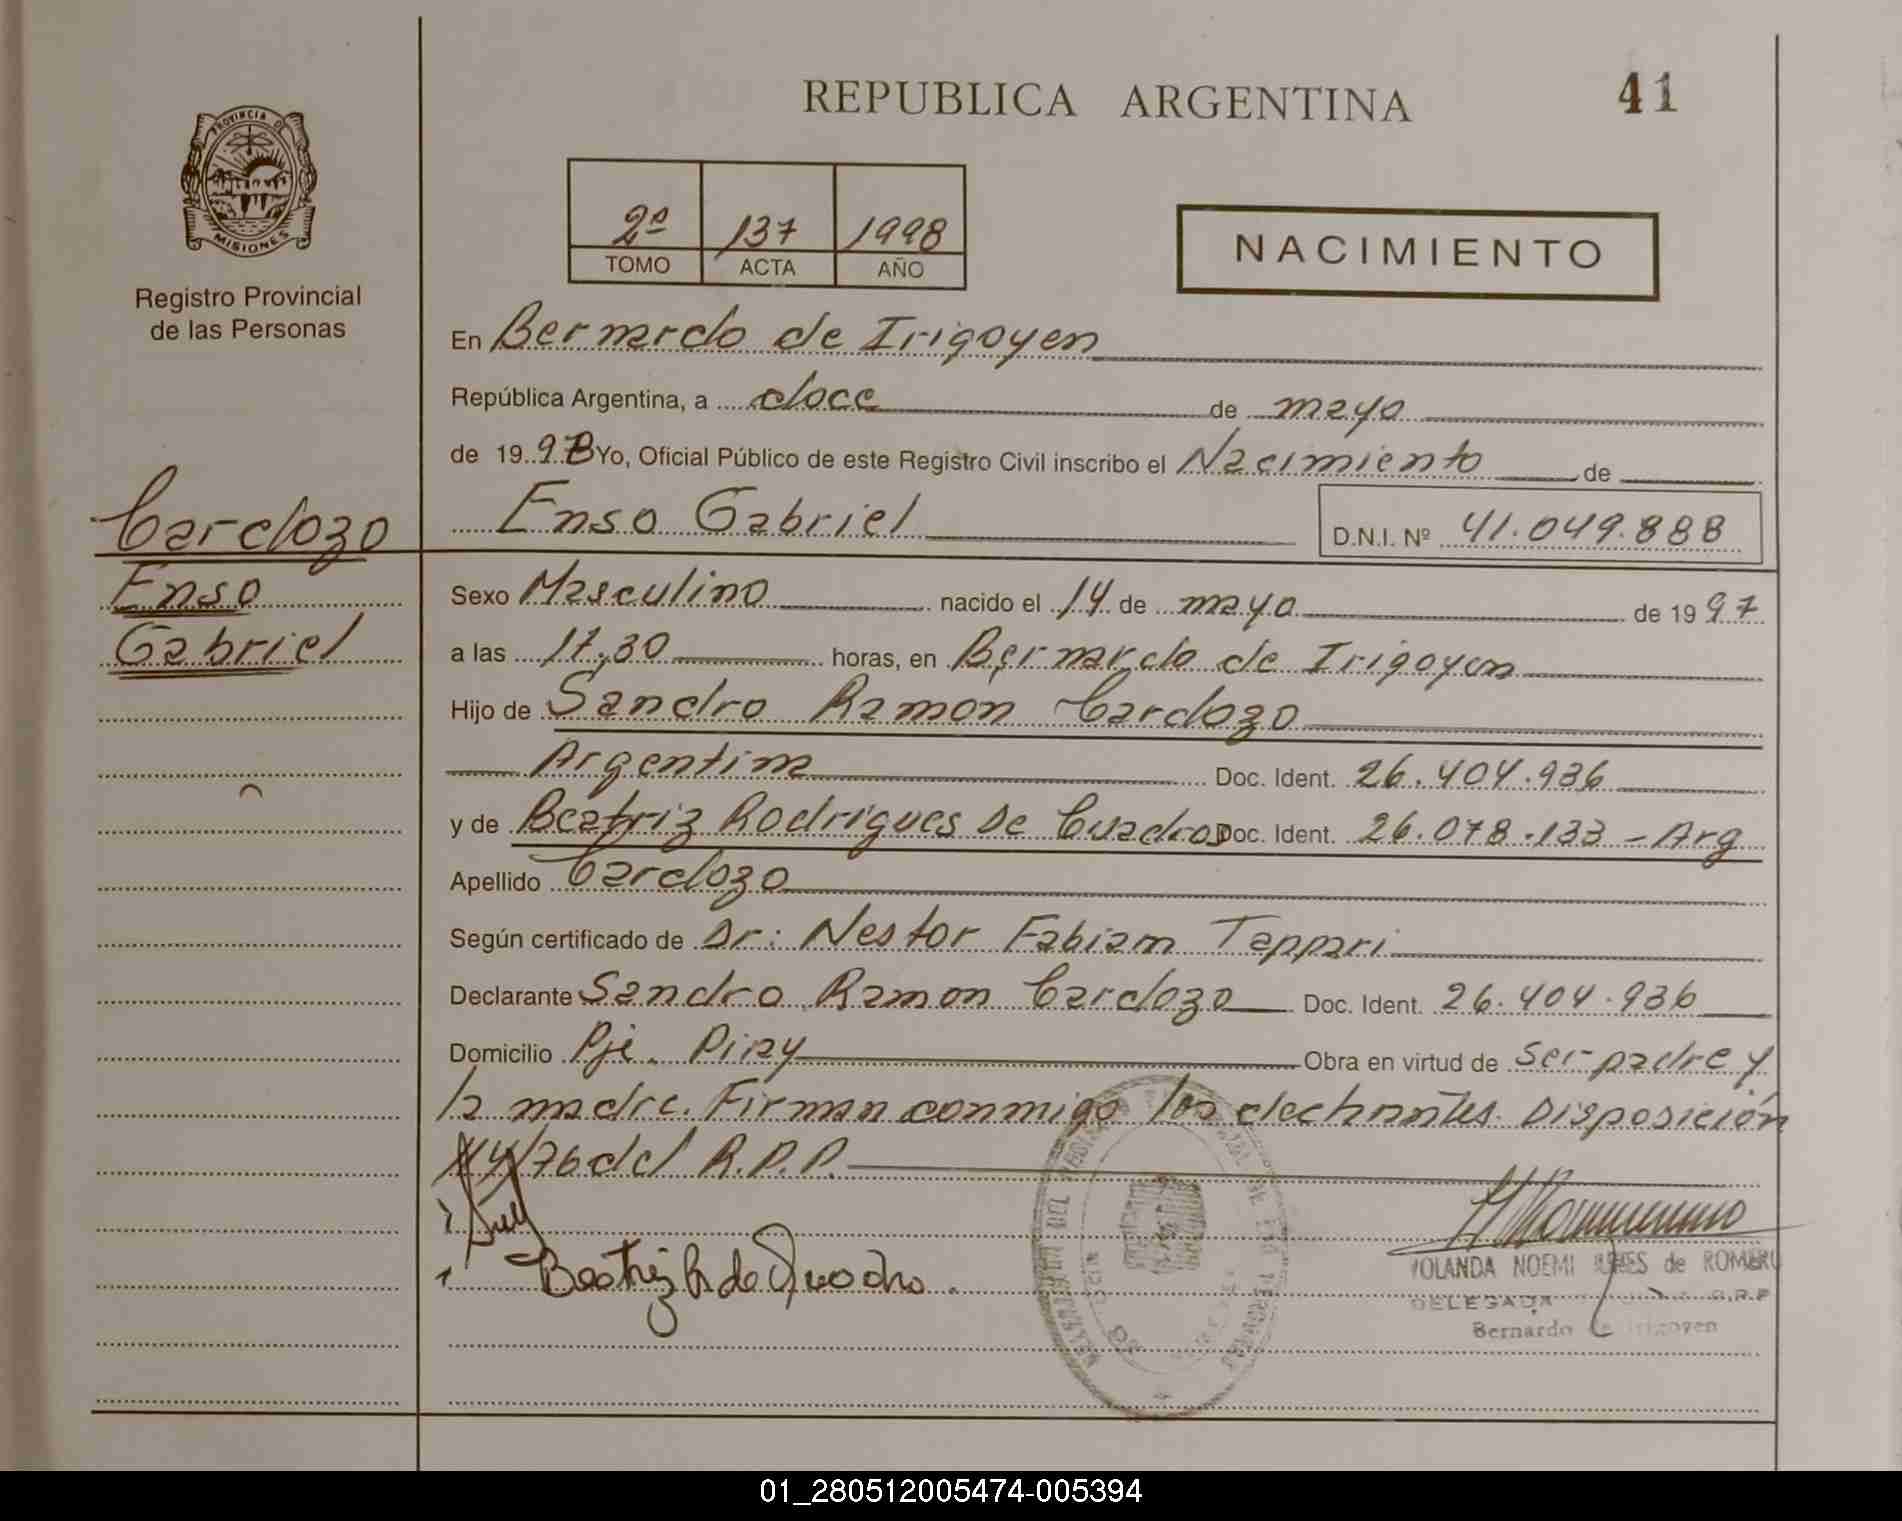 REPUBLICA ARGENTINA
41
PROVINCIA DE
MISIONES
Registro Provincial
de las Personas
2º 137 1998
TOMO ACTA AÑO
NACIMIENTO
En Bernardo de Irigoyen
República Argentina, a doce de mayo
de 1998 Yo, Oficial Público de este Registro Civil inscribo el Nacimiento de
Enso Gabriel
D.N.I. Nº 41.049.888
Cardozo
Enso
Gabriel
Sexo Masculino nacido el 14 de mayo de 1997
a las 17,30 horas, en Bernardo de Irigoyen
Hijo de Sandro Ramon Cardozo
Argentina Doc. Ident. 26.404.936
y de Beatriz Rodrigues De Cuadros Doc. Ident. 26.078.133 - Arg
Apellido Cardozo
Según certificado de Dr: Nestor Fabian Tappari
Declarante Sandro Ramon Cardozo Doc. Ident. 26.404.936
Domicilio Pje. Piray Obra en virtud de ser padre y
la madre. Firman conmigo los declarantes. Disposición
/76 del R.P.P.
Beatriz R de Quadro.
YOLANDA NOEMI de ROMERO
DELEGADA R.P.P
Bernardo de Irigoyen
01_280512005474-005394